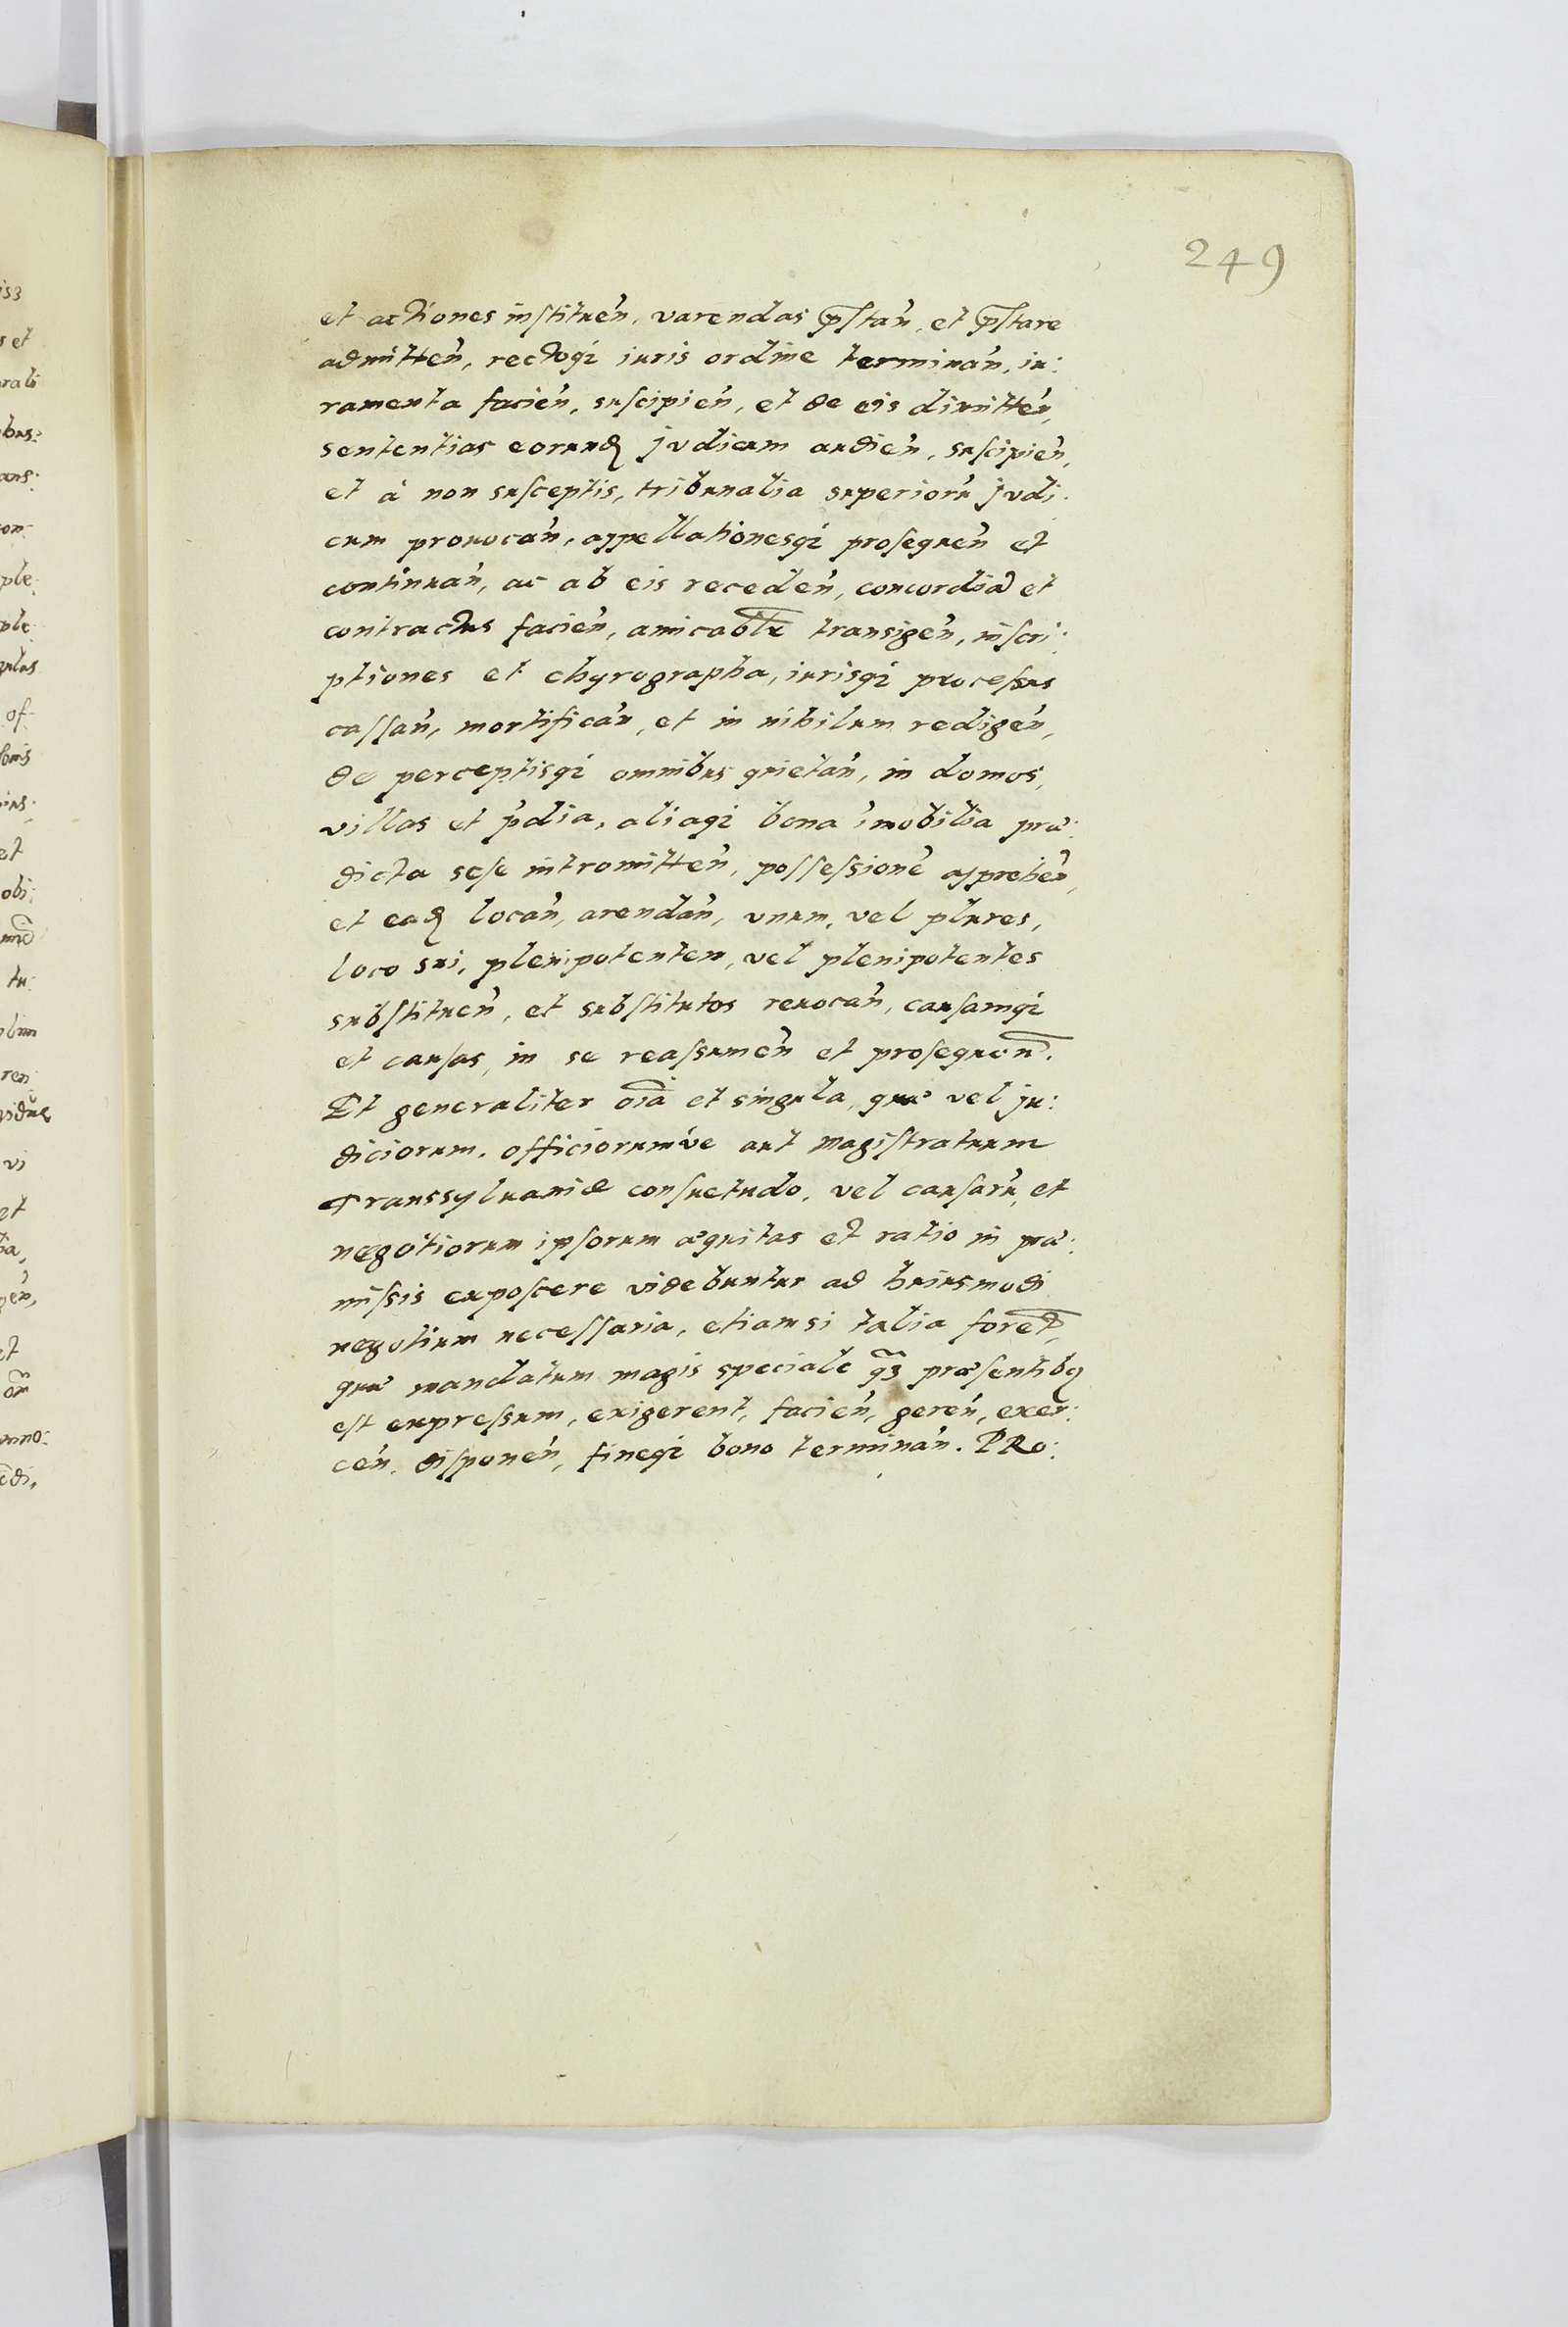 249
et actiones instituen̄, varendas p̄stan̄, et p̄stare
admitten̄, rectoq́; iuris ordine terminan̄, iu:
ramenta facien̄, suscipien̄, et de eis dimitten̄,
sententias eorundȩ judicum audien̄, suscipien̄,
et à non susceptis, tribunalia superiorū judi:
cum prouocan̄, appellationesq́; prosequen̄ et
continuan̄, ac ab eis receden̄, concordia et
contractus facien̄, amicablr̄ transigen̄, inscri:
ptiones et chyrographa, iurisq́; processus
cassan̄, mortifican̄, et in nihilum redigen̄,
de perceptisq́; omnibus quietan̄, in domos,
villas et p̄dia, aliaq́; bona īmobilia præ:
dicta sese intromitten̄, possessionē apprehen̄,
et eadȩ locan̄, arendan̄, vnum, vel plures,
loco sui, plenipotentem, vel plenipotentes
substituen̄, et substitutos reuocan̄, causamq́;
et causas, in se reassumen̄ et prosequen̄.
Et generaliter oīa et singula, quæ vel ju:
diciorum, officiorumúe aut magistratuum
Transsyluaniæ consuetudo, vel causarū, et
negotiorum ipsorum æquitas et ratio in præ:
missis exposcere videbuntur ad huiusmodi
negotium necessaria, etiamsi talia foret̄,
quæ mandatum magis speciale q̄ꝫ præsentibꝯ
est expressum, exigerent, facien̄, geren̄, exer:
cen̄, disponen̄, fineq́; bono terminan̄. PRo: